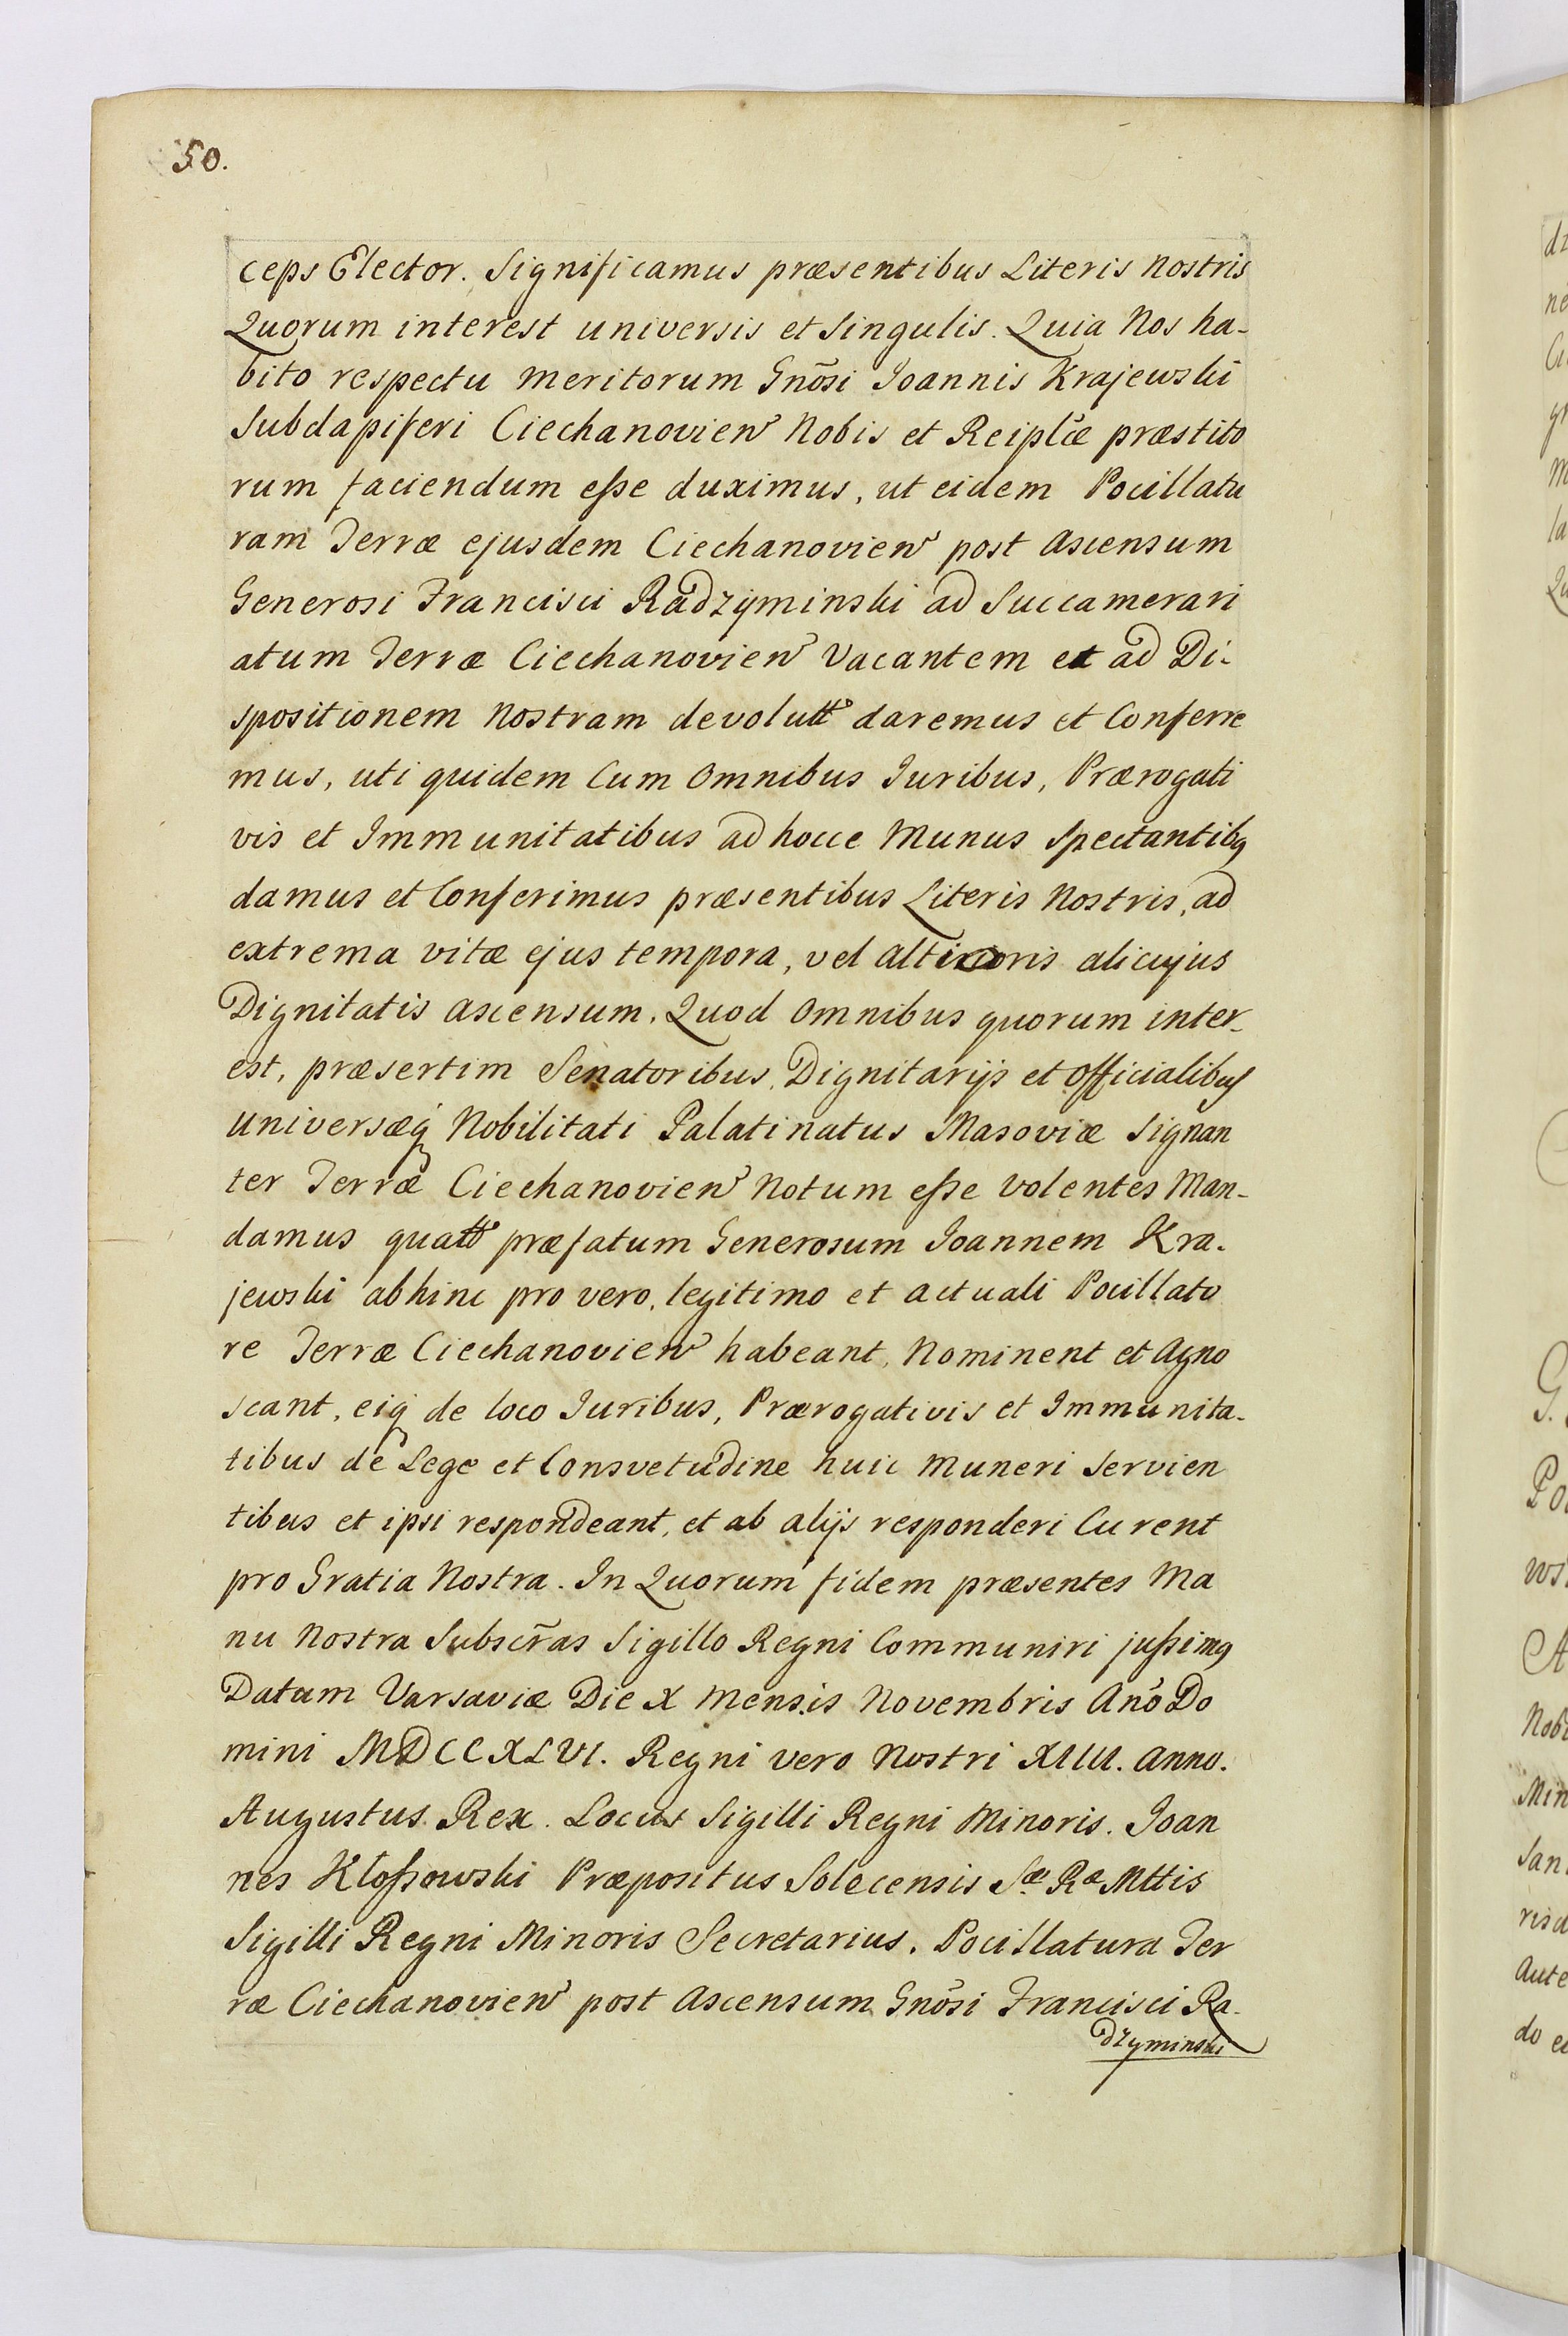 50.
ceps Elector. Significamus præsentibus Literis Nostris
Quorum interest universis et Singulis. Quia Nos ha-
bito respectu Meritorum Gnõsi Joannis Krajewski
Subdapiferi Ciechanovien̄ Nobis et Reiplcæ præstito
rum faciendum eſse duximus, ut eidem Pocillatu
ram Terræ ejusdem Ciechanovien̄ post Ascensum
Generosi Francisci Radzyminski ad Succamerari
atum Terræ Ciechanovien̄ Vacantem et ad Di-
spositionem Nostram devolutt daremus et Conferre
mus, uti quidem Cum Omnibus Juribus, Prærogati
vis et Immunitatibus ad hocce Munus Spectantibꝫ
damus et Conferimus præsentibus Literis Nostris, ad
extrema vitæ ejus tempora, vel altioris alicujus
Dignitatis ascensum. Quod Omnibus quorum inter-
est, præsertim Senatoribus, Dignitarijs et Officialibus
Universæqꝫ Nobilitati Palatinatus Masoviæ Signan
ter Terræ Ciechanovien̄ Notum eſse Volentes Man-
damus quatt præfatum Generosum Joannem Kra-
jewski abhinc pro vero, legitimo et actuali Pocillato
re Terræ Ciechanovien̄ habeant, Nominent et Agno
scant, eiqꝫ de loco Juribus, Prærogativis et Immunita-
tibus de Lege et Consvetudine huic Muneri Servien
tibus et ipsi respondeant, et ab alijs responderi Curent
pro Gratia Nostra. In Quorum fidem præsentes Ma
nu Nostra Subscr̃as Sigillo Regni Communiri juſsimꝫ
Datum Varsaviæ Die X Mensis Novembris Anõ Do
mini MDCCXLVI. Regni vero Nostri XIIII. Anno.
Augustus Rex. Locus Sigilli Regni Minoris. Joan
nes Kłoſsowski Præpositus Solecensis Sæ Ræ Mttis
Sigilli Regni Minoris Secretarius. Pocillatura Ter
ræ Ciechanovien̄ post Ascensum Gnõsi Francisci Ra-
dzyminski